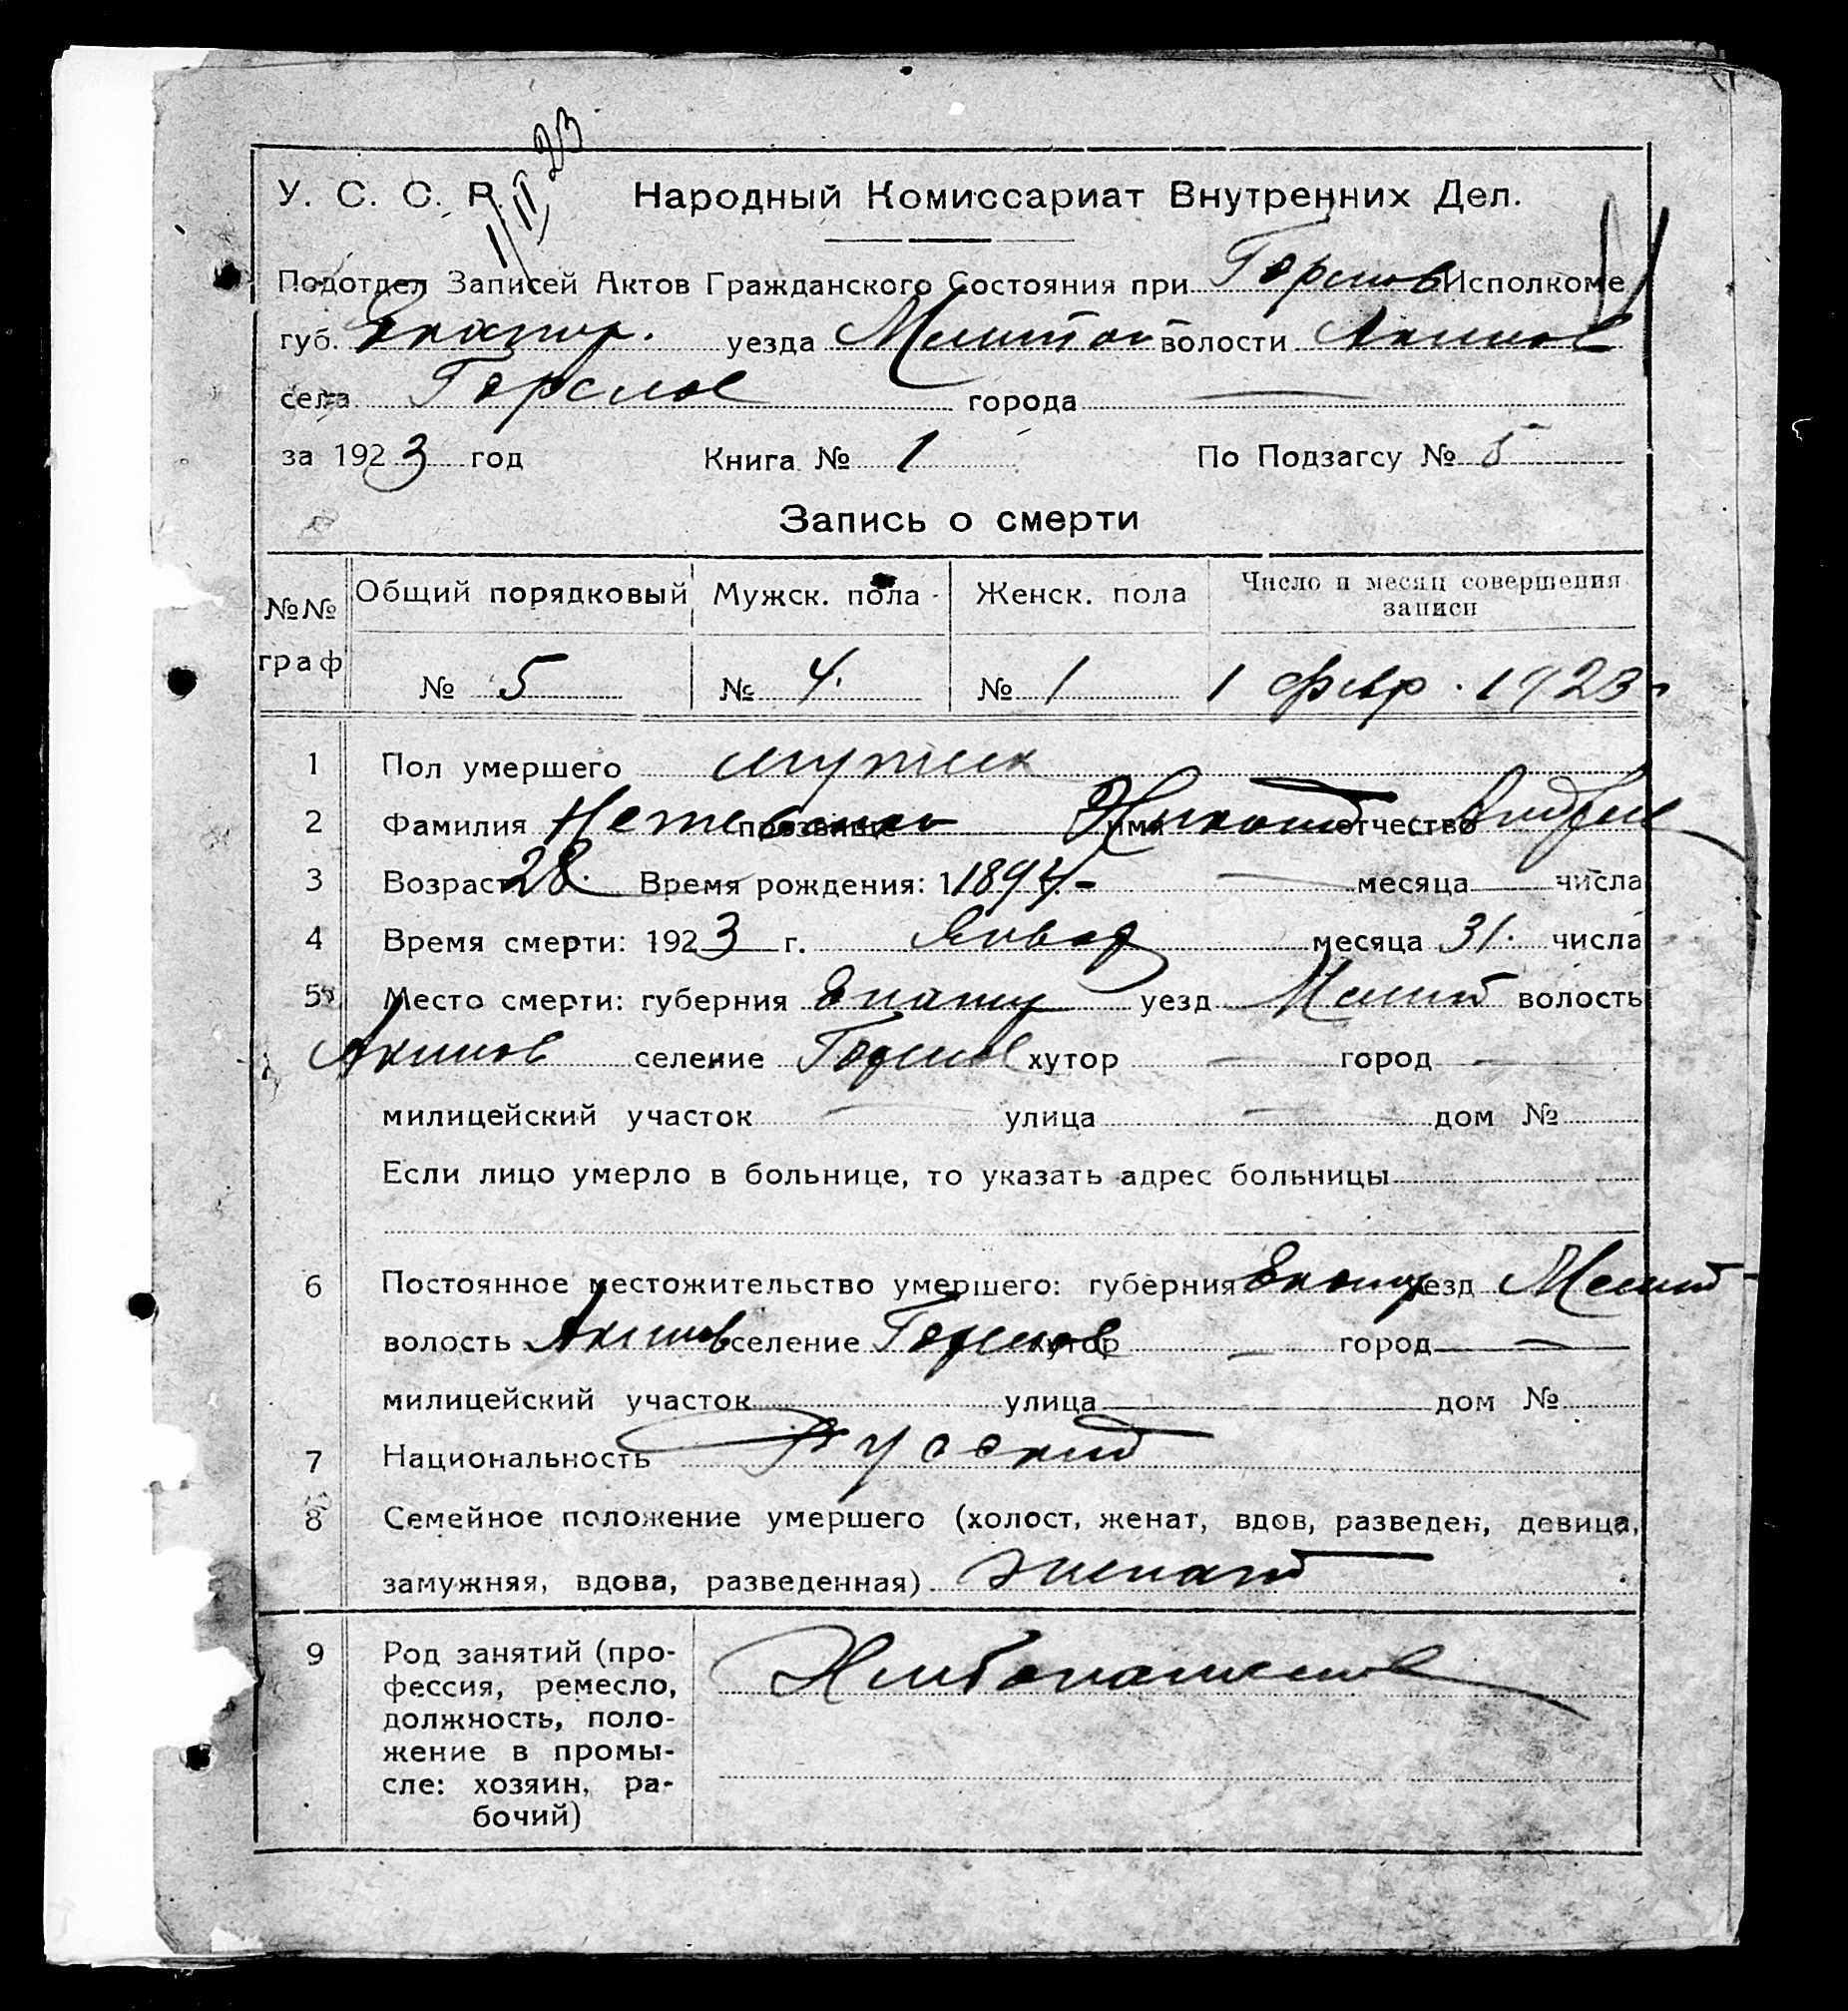 1/II 23
У. С. С. Р. Народный Комиссариат Внутренних Дел.
Подотдел Записей Актов Гражданского Состояния при Исполкоме
губ. Екатер. уезда Мелитоп волости Акимов
села города —
за 1923 год Книга № 1 По Подзагсу № 5
Запись о смерти
№№ граф Общий порядковый Мужск. пола Женск. пола Число и месяц совершения записи
№ 5 № 4. № 1 1 февр. 1923 г
1 Пол умершего мужск
2 Фамилия прозвище имя отчество Андрее
3 Возраст 28. Время рождения: 1 1894. — месяца числа
4 Время смерти: 1923 г. Январ месяца 31. числа
5 Место смерти: губерния Екатер уезд Мелит волость
Акимов селение хутор — город —
милицейский участок — улица — дом №
Если лицо умерло в больнице, то указать адрес больницы
6 Постоянное местожительство умершего: губерния Екатер уезд Мелит
волость Акимов селение хутор — город —
милицейский участок улица дом №
7 Национальность Русский
8 Семейное положение умершего (холост, женат, вдов, разведен, девица,
замужняя, вдова, разведенная) женат
9 Род занятий (про- Хлебопашест
фессия, ремесло,
должность, поло-
жение в промы-
сле: хозяин, ра-
бочий)